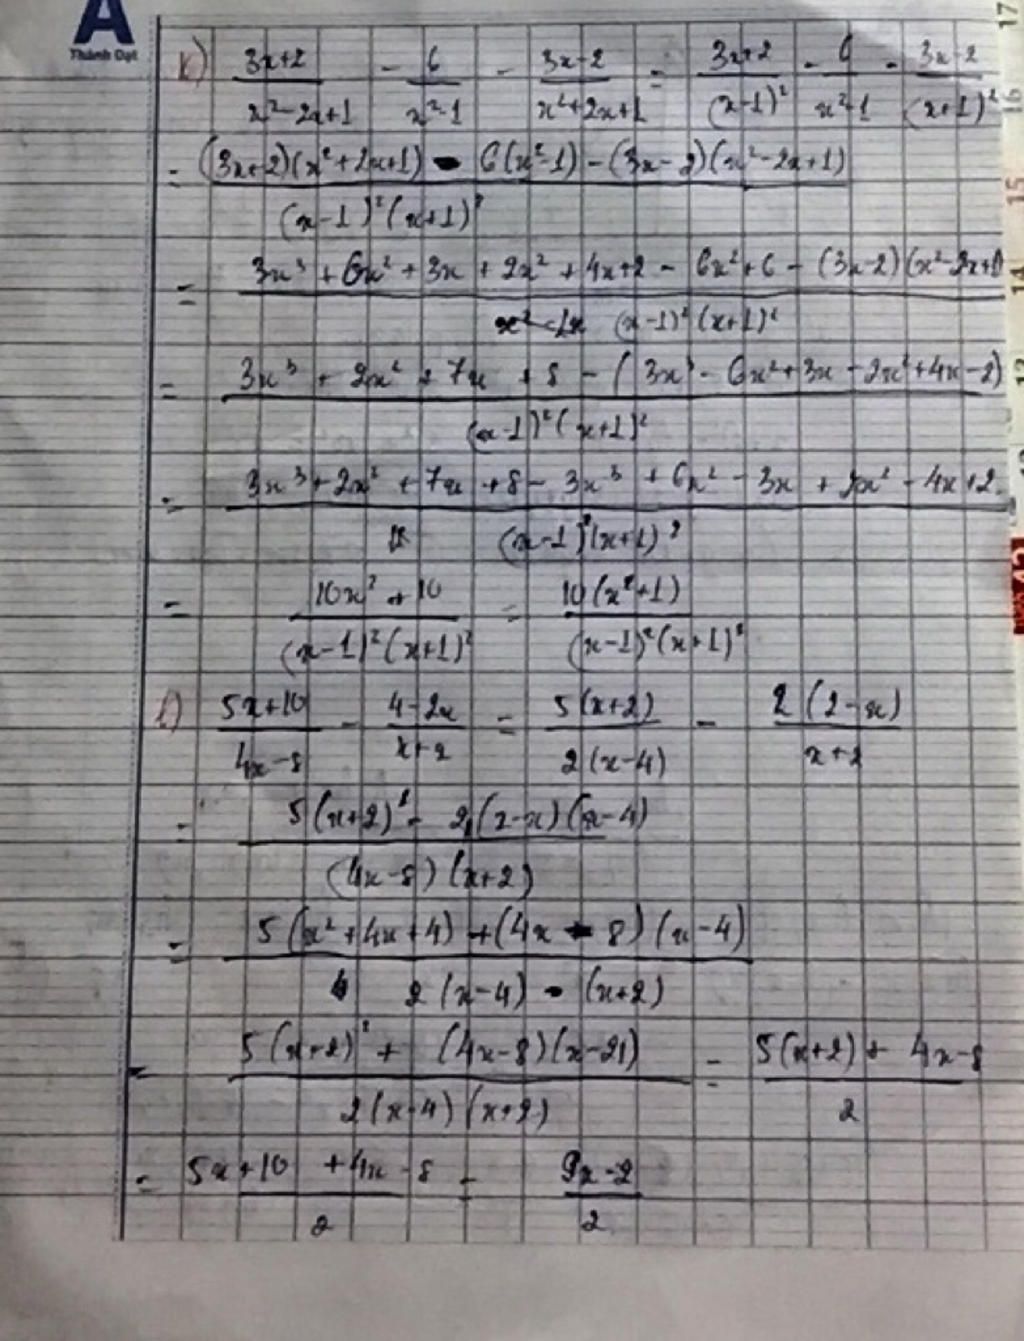 A
Thành Đạt
k) (3x+2)/(x²-2x+1) - 6/(x²-1) - (3x-2)/(x²+2x+1) = (3x+2)/(x-1)² - 6/(x²-1) - (3x-2)/(x+1)²
= ((3x+2)(x²+2x+1) - 6(x²-1) - (3x-2)(x²-2x+1))/((x-1)²(x+1)²)
= (3x³ + 6x² + 3x + 2x² + 4x+2 - 6x²+6 - (3x-2)(x²-2x+1))/((x-1)²(x+1)²)
= (3x³ + 2x² + 7x + 8 - (3x³ - 6x²+3x - 2x²+4x-2))/((x-1)²(x+1)²)
= (3x³+2x² + 7x + 8 - 3x³ + 6x² - 3x + 2x² - 4x+2)/((x-1)²(x+1)²)
= (10x² + 10)/((x-1)²(x+1)²) = 10(x²+1)/((x-1)²(x+1)²)
l) (5x+10)/(4x-8) - (4-2x)/(x+2) = 5(x+2)/(2(x-4)) - 2(2-x)/(x+2)
= (5(x+2)² - 2(2-x)(x-4))/((4x-8)(x+2))
= (5(x²+4x+4) + (4x-8)(x-4))/(2(x-4)(x+2))
= (5(x+2)² + (4x-8)(x-21))/(2(x-4)(x+2)) = (5(x+2) + 4x-8)/2
= (5x+10 + 4x-8)/2 = (9x-2)/2
17
16
15
14
13